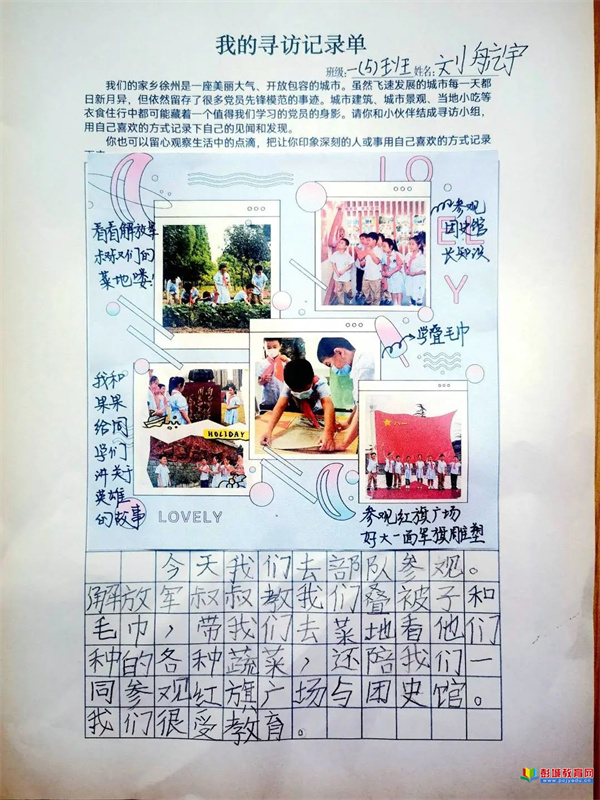 我的寻访记录单
班级:一(5)班 姓名:刘舟立宇
我们的家乡徐州是一座美丽大气、开放包容的城市。虽然飞速发展的城市每一天都
日新月异,但依然留存了很多党员先锋模范的事迹。城市建筑、城市景观、当地小吃等
衣食住行中都可能藏着一个值得我们学习的党员的身影。请你和小伙伴结成寻访小组,
用自己喜欢的方式记录下自己的见闻和发现。
你也可以留心观察生活中的点滴,把让你印象深刻的人或事用自己喜欢的方式记录
看看解放军
叔叔们的
菜地喽!
参观
团史馆
长知识
学叠毛巾
我和
果果
给同
学们
讲关于
英雄
的故事
HOLIDAY
LOVELY
参观红旗广场
好大一面军旗雕塑
今天我们去部队参观。
解放军叔叔教我们叠被子和
毛巾,带我们去菜地看他们
种的各种蔬菜,还陪我们一
同参观红旗广场与团史馆。
我们很受教育。
彭城教育网
www.pcjyedu.cn